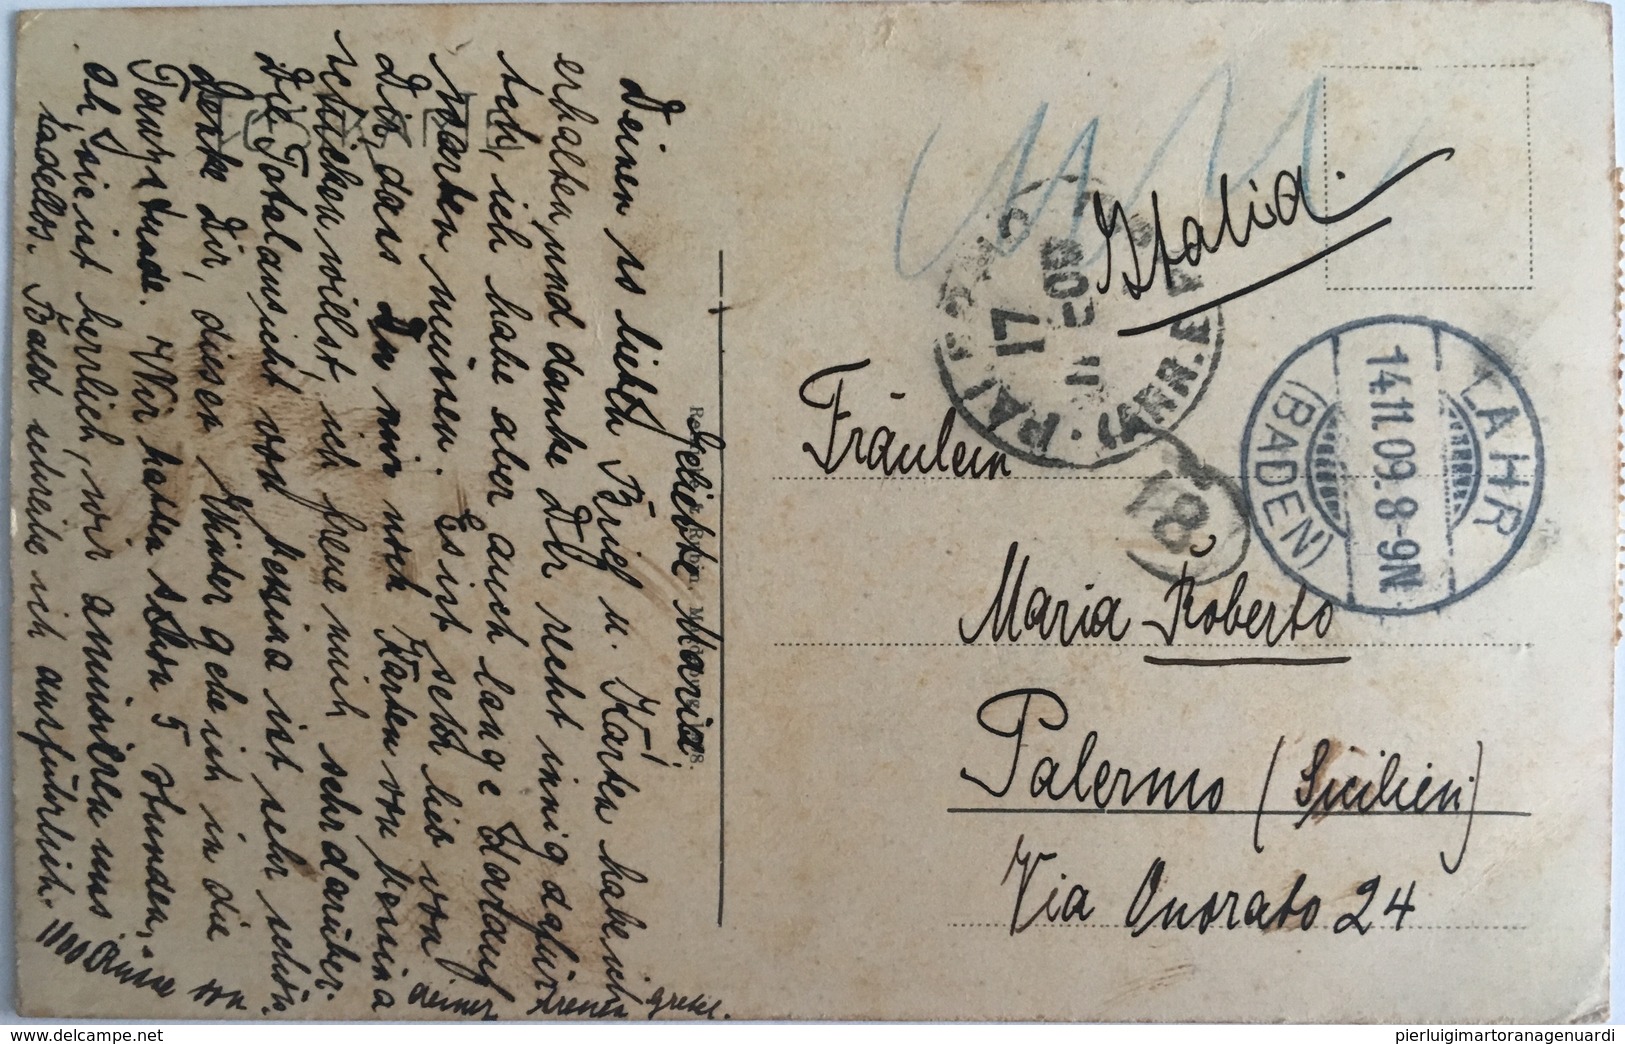 Geliebte Maria!
Deinen so lieben Brief u. Karten habe ich
erhalten, und danke Dir recht innig dafür
tuch, ich habe aber auch lange Darauf
warten müssen. Es ist sehr lieb von
Dir, dass Du mir noch Karten von Messina
schicken willst, ich freue mich sehr darüber.
Die Totalansicht von Messina ist sehr schön.
Denke Dir, diesen Winter gehe ich in die
Tanzstunde. Wir hatten schon 5 Stunden,
oh, sie ist herrlich, wir amüsieren uns
tadellos. Bald schreibe ich ausführlich.
1000 Küsse von
deiner treuen Gretel.
Italia.
Fräulein
Maria Roberto
Palermo (Sicilien)
Via Onorato 24
PALERMO
17
11 09
(ARR.E P
18
LAHR
14.11.09. 8-9N
(BADEN)
pierluigimartoranagenuardi